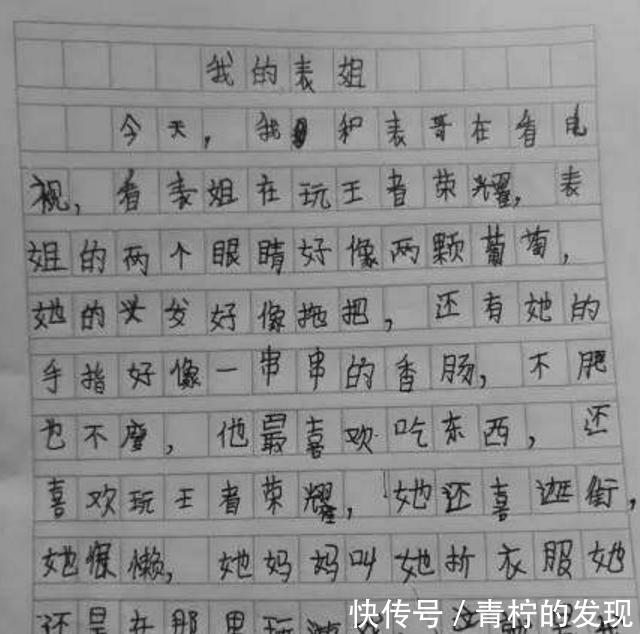 我的表姐
今天，我和表哥在看电
视，看表姐在玩王者荣耀，表
姐的两个眼睛好像两颗葡萄，
她的头发好像拖把，还有她的
手指好像一串串的香肠，不肥
也不瘦，他最喜欢吃东西，还
喜欢玩王者荣耀，她还喜逛街，
她很懒，她妈妈叫她折衣服她
还是在那里玩游
快传号／青柠的发现